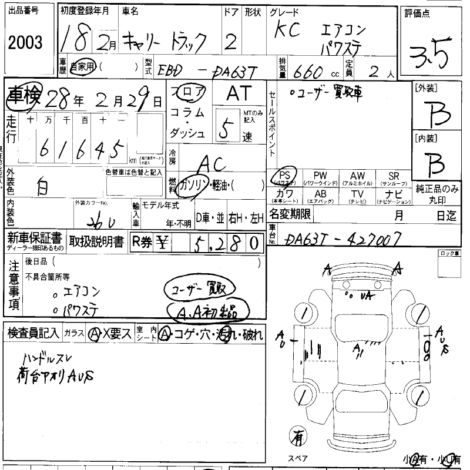 出品番号 初度登録年月 車名 ドア 形状 グレード 評価点
2003 18年2月 キャリートラック 2 KC エアコン パワステ 3.5
車歴 自家用( ) 型式 EBD-DA63T 排気量 660cc 定員 2人
車検 28年2月29日 フロア AT セールスポイント 〔外装〕
コラム・ダッシュ MTのみ記入 5速 ○ユーザー買取車 B
走行 十万千百十一
61645 〔内装〕
冷房 AC B
燃料 ガソリン・軽油・( ) PS PW AW SR 純正品のみ丸印
(パワステ) (パワーウインドウ) (アルミホイル) (サンルーフ)
外装色 白 色替車は色替と記入 カワ AB TV ナビ
(本革シート) (エアバッグ) (テレビ) (ナビ)
内装色 外装カラーNo. 26U 輸入車 モデル年式 年・不明 D車・並 右H・左H 名変期限 月 日迄
新車保証書 取扱説明書 R券¥ 5,280 車台No. DA63T-427007
ディーラー捺印あるもの
注意事項 後日品( ) ロック車
不具合箇所等 ユーザー買取
○エアコン A.A初出品
○パワステ
検査員記入 ガラス A・X要ス 室内シート A・コゲ・穴・汚れ・破れ
ハンドルスレ
荷台アオリAUS
A A
UA
A
A
有
スペア 小A有・小U有